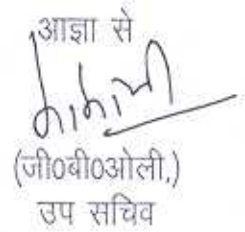 आज्ञा से
(जी0बी0ओली,)
उप सचिव